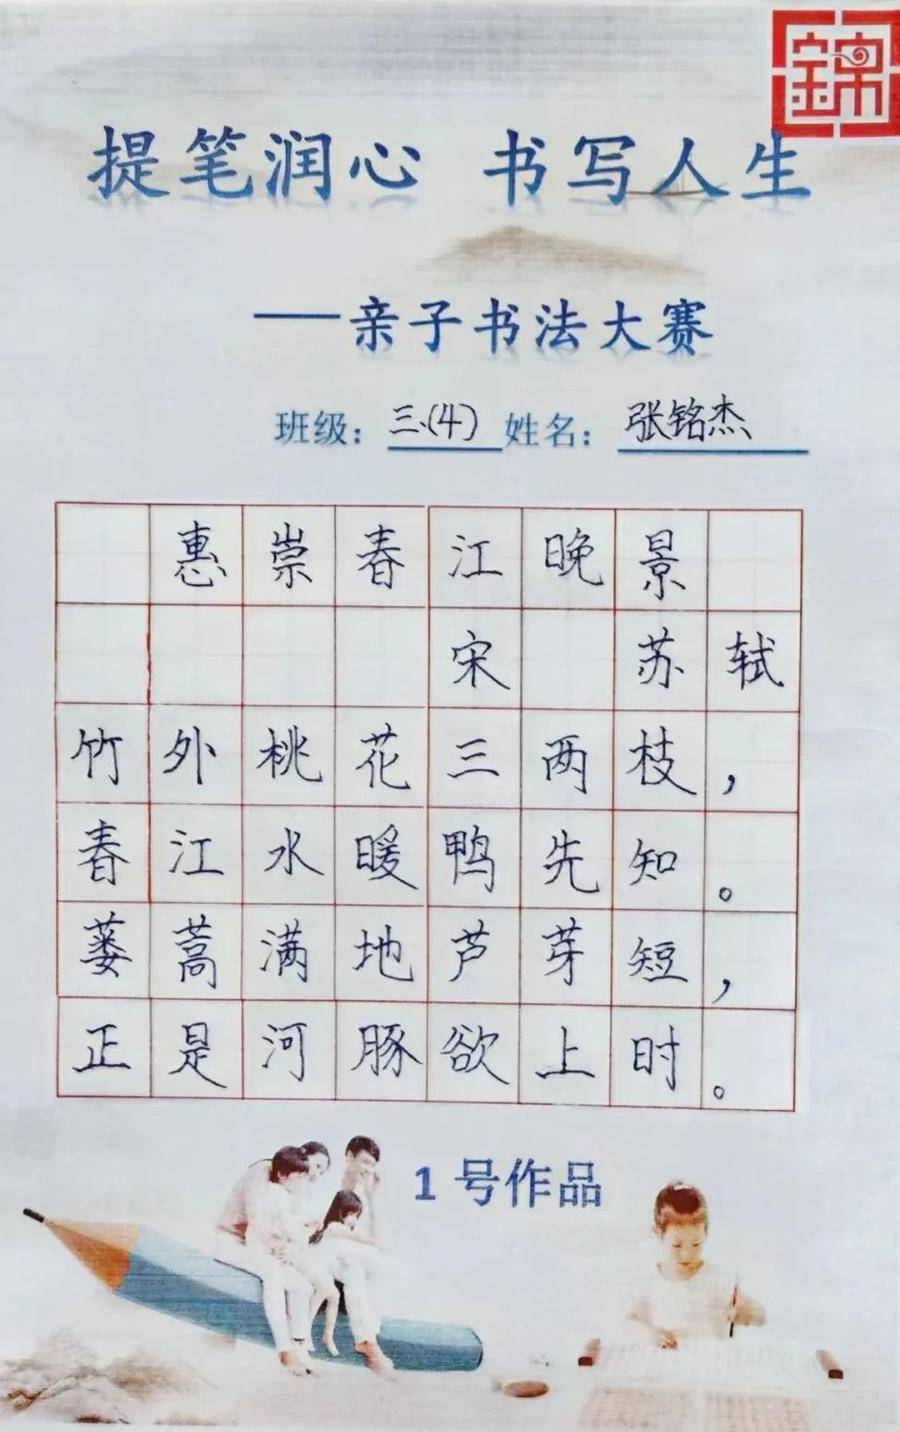 錦
提笔润心 书写人生
——亲子书法大赛
班级：三(4) 姓名：张铭杰
惠崇春江晚景
宋 苏轼
竹外桃花三两枝，
春江水暖鸭先知。
蒌蒿满地芦芽短，
正是河豚欲上时。
1号作品